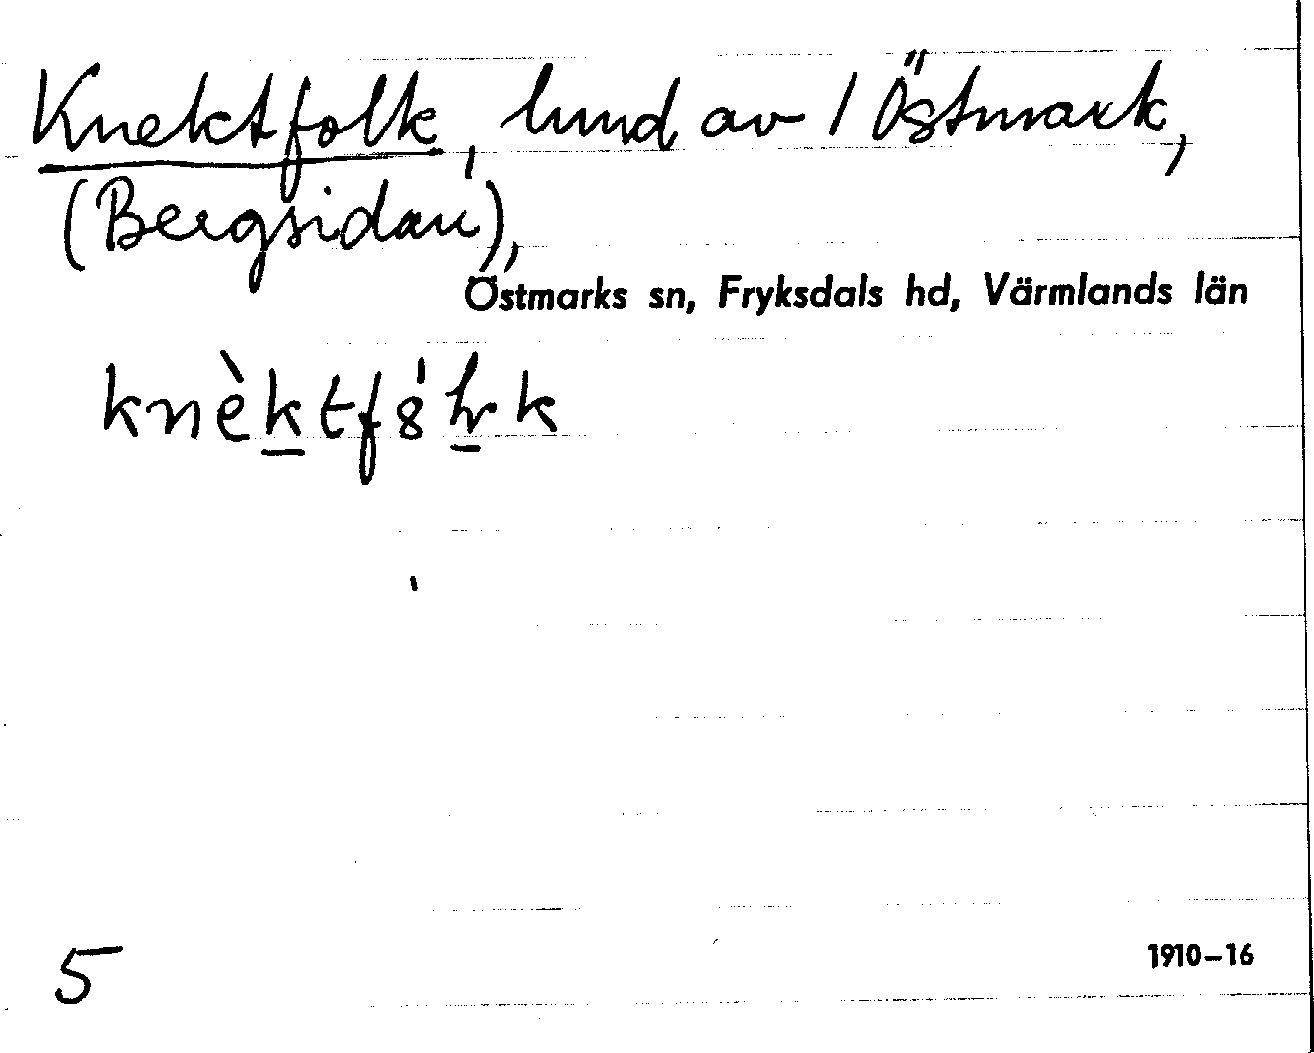 Knektfolk, lund av 1 Östmark,
(Bergsidan),
Östmarks sn, Fryksdals hd, Värmlands län
knèktf
5
1910–16